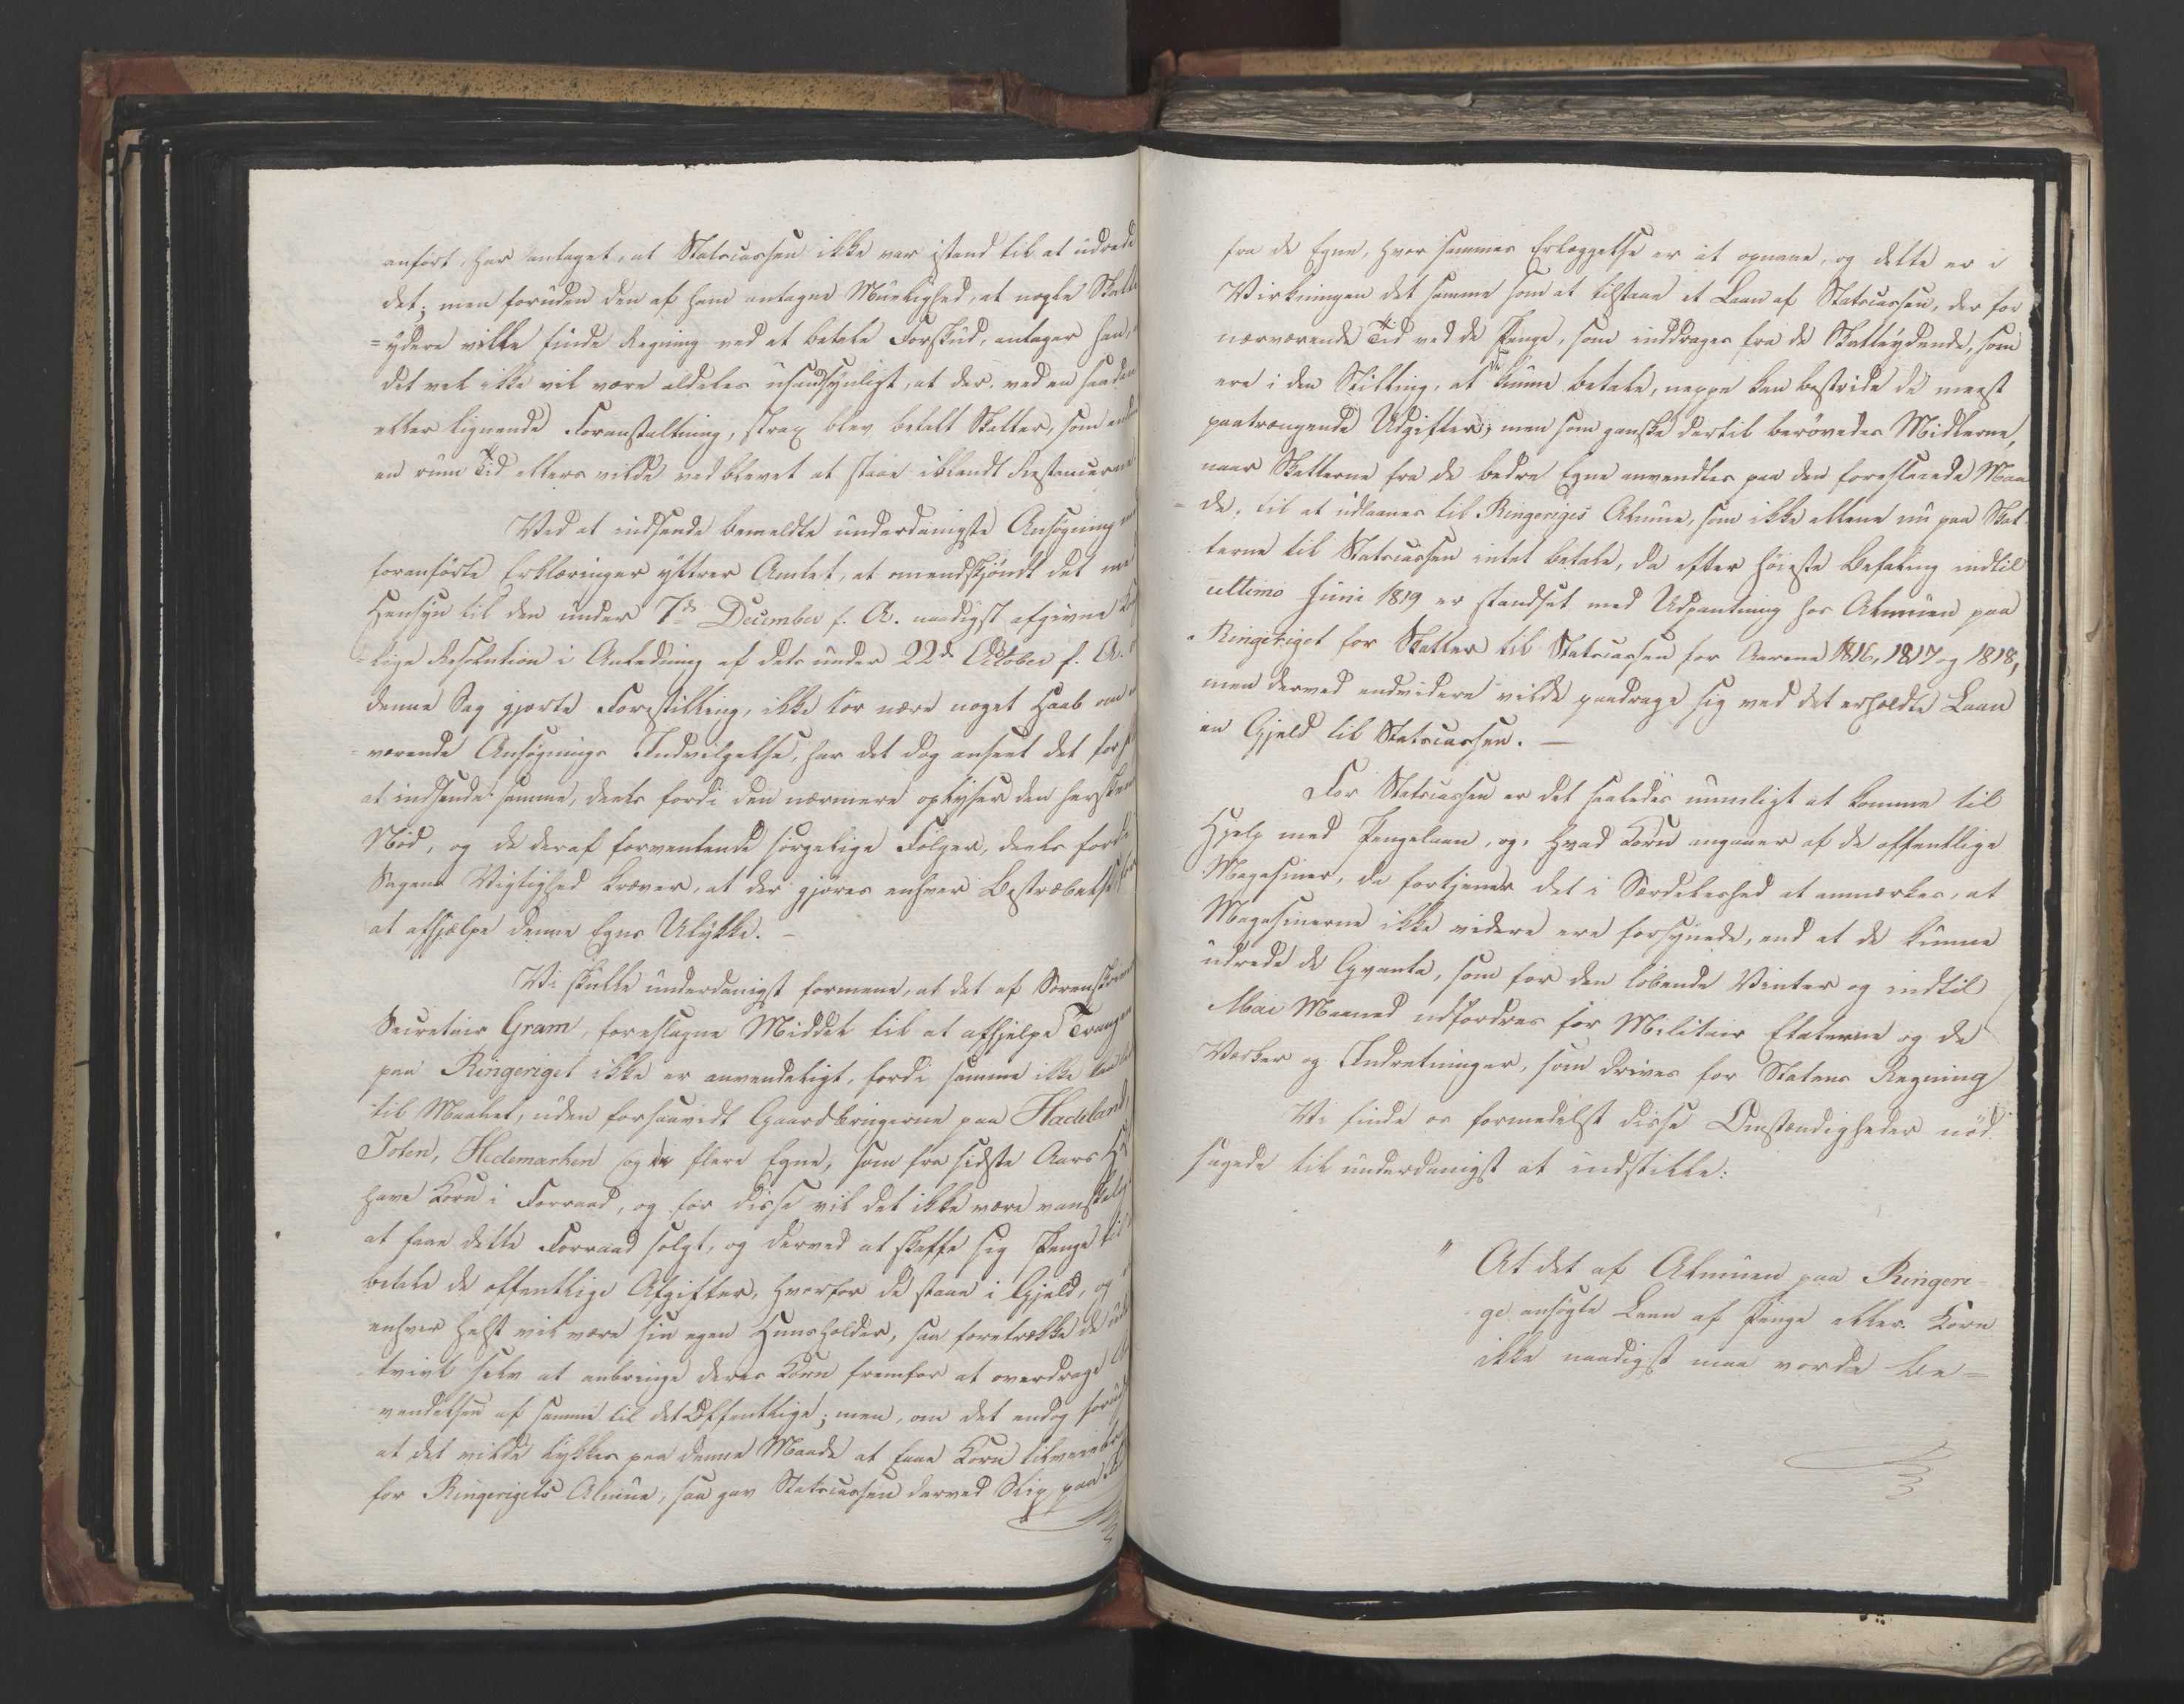 anført, har antaget, at Statscassen ikke var istand til at udrede
det; men foruden den af ham antagne Muelighed, at nogle Skatte
=ydere ville finde Regning ved at betale Forskud, antager han,
det vel ikke vil være aldeles usandsynligt, at der, ved en saadan
eller lignende Foranstaltning, strax blev betalt Skatter, som
en rum Tid ellers vilde vedblevet at staae iblandt Restancerne
Ved at indsende bemeldte underdanigste Ansøgning
foranførte Erklæringer yttrer Amtet, at omendskjøndt det
Hensyn til den under 7de December f. A. naadigst afgivne
=lige Resolution i Anledning af dets under 22de October f. A.
denne Sag gjorte Forestilling, ikke tør nære noget Haab om
=værende Ansøgnings Indvilgelse, har det dog anseet det for
at indsende samme, deels fordi den nærmere oplyser den
Nød, og de deraf forventende sørgelige Følger, deels fordi
Sagens Vigtighed kræver, at der gjøres enhver Bestræbelse for
at afhjælpe denne Egns Ulykke. –
Vi skulle underdanigst formene, at det af Sorenskriver
Secretair Gram, foreslagne Middel til at afhjelpe Trangen
paa Ringeriget ikke er anvendeligt, fordi samme ikke
til Maalet, uden forsaavidt Gaardbrugerne paa Hadeland,
Toten, Hedemarken og de flere Egne, som fra sidste Aars
have Korn i Forraad, og for disse vil det ikke være vanskeligt
at faae dette Forraad solgt, og derved at skaffe sig Penge til
betale de offentlige Afgifter, hvorfor de staae i Gjeld, og
enhver helst vil være sin egen Huusholder, saa foretrække de
tvivl selv at anbringe deres Korn fremfor at overdrage
vendelsen af samme til det Offentlige; men, om det endog
at det vilde lykkes paa denne Maade at faae Korn
for Ringerigets Almue, saa gav Statscassen derved Slip paa
fra de Egne, hvor sammes Erlæggelse er at opnaae, og dette er i
Virkningen det samme som at tilstaae et Laan af Statscassen, der for
nærværende Tid ved de Penge, som inddrages fra de Skatteydende, som
ere i den Stilling, at kunne betale, neppe kan bestride de meest
paatrængende Udgifter; men som ganske dertil berøvedes Midlerne,
naar Skatterne fra de bedre Egne anvendtes paa den foreslaaede Maa
=de, til at udlaanes til Ringeriges Almue, som ikke allene nu paa Skat
terne til Statscassen intet betale, da efter høieste Befaling indtil
ultimo Juni 1819 er standset med Udpantning hos Almuen paa
Ringeriget for Skatter til Statscassen for Aarene 1816, 1817 og 1818,
men derved endvidere vilde paadrage sig ved det erholdte Laan
en Gjeld til Statscassen. –
For Statscassen er det saaledes umueligt at komme til
Hjelp med Pengelaan, og, hvad Korn angaaer af de offentlige
Magasiner, da fortjener det i Særdeleshed at anmærkes, at
Magasinerne ikke videre ere forsynede, end at de kunne
udrede de Qvanta, som for den løbende Vinter og indtil
Mai Maaned udfordres for Militair Etaterne og de
Værker og Indretninger, som drives for Statens Regning
Vi finde os formedelst disse Omstændigheder nød
sagede til underdanigst at indstille:
" At det af Almuen paa Ringeri=
ge ansøgte Laan af Penge eller Korn
ikke naadigst maa vorde be=